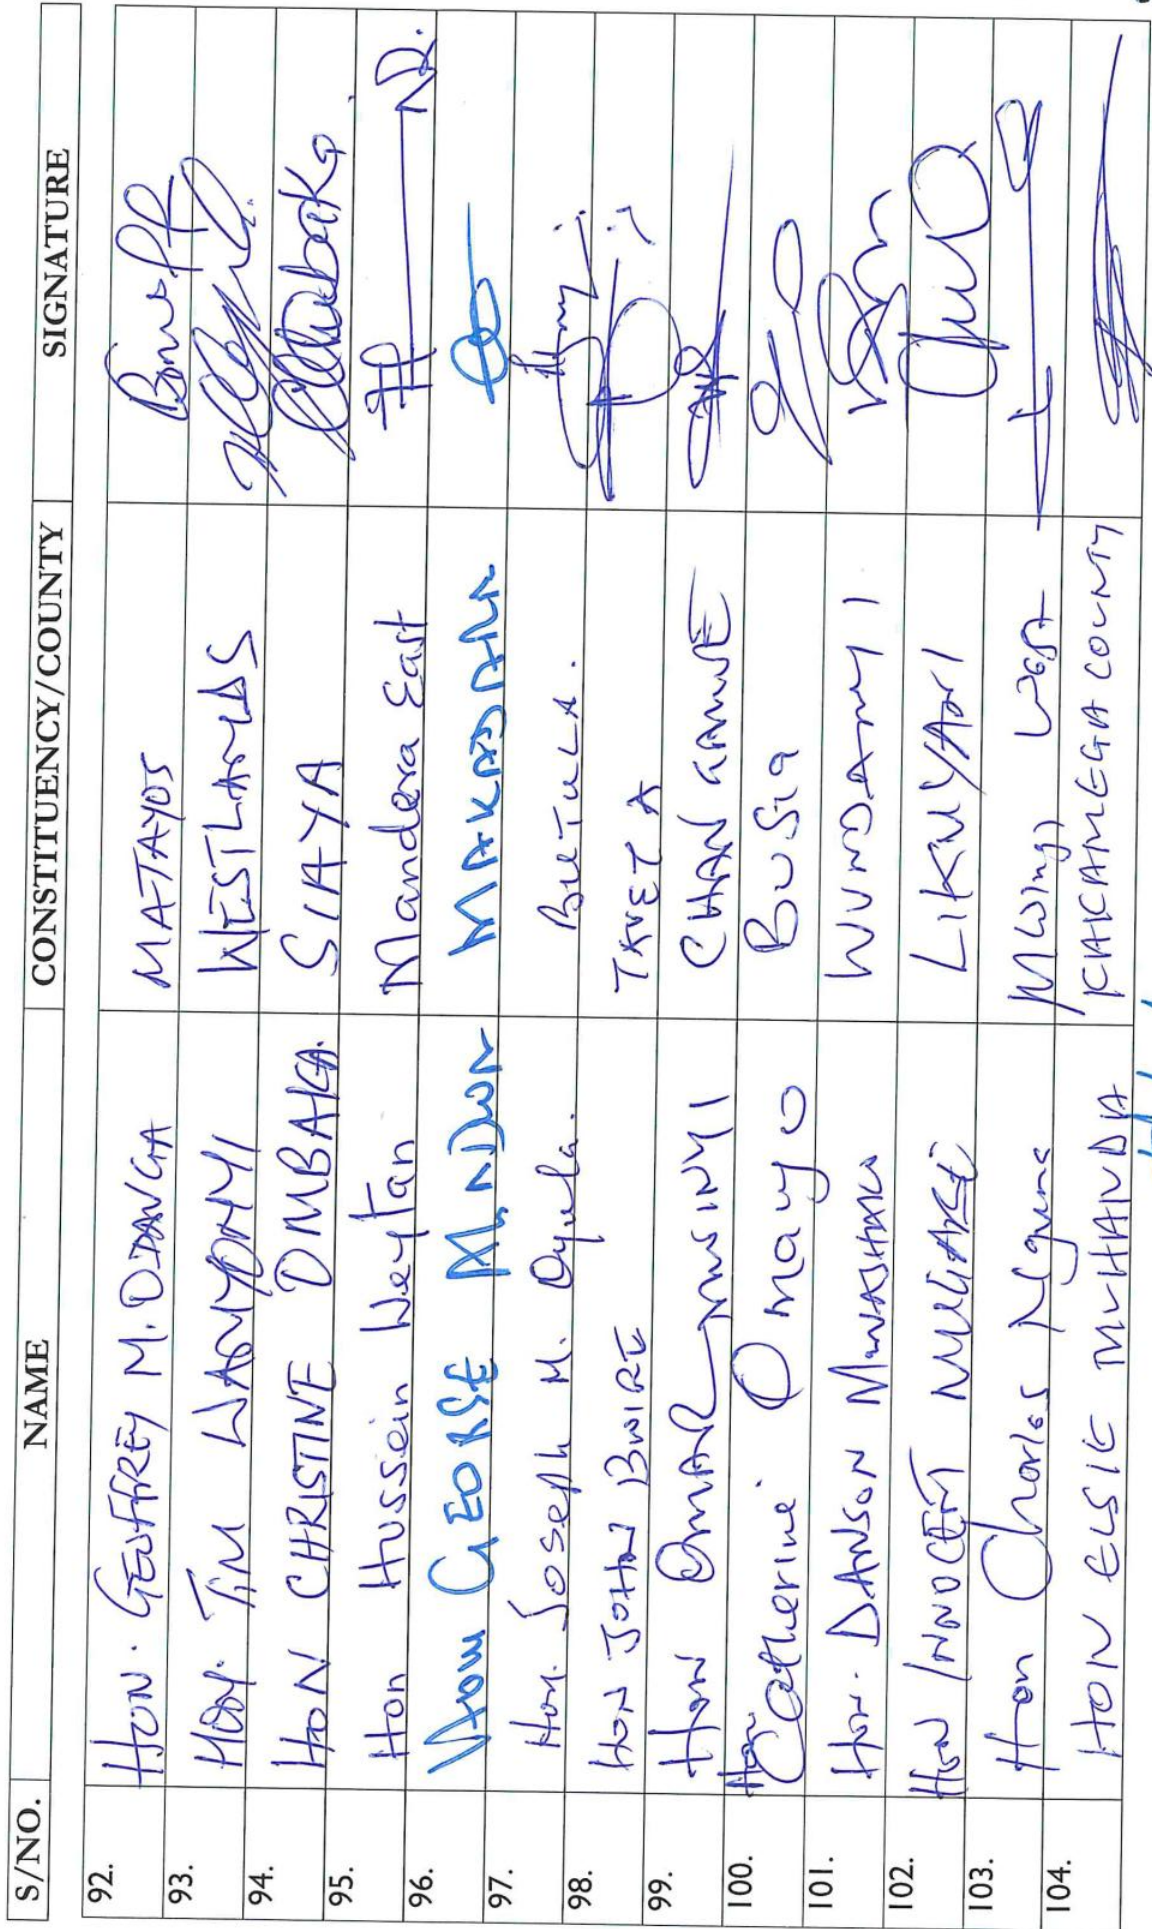 S/NO. NAME CONSTITUENCY/COUNTY SIGNATURE
92. HON. GEOFFREY M. ODANGA MATAYOS
93. HON. TIM WANYONYI WESTLANDS
94. HON CHRISTINE OMBAKA SIAYA
95. Hon Hussein WeyTan Mandera East
96. HON GEORGE MAKADARA
97. Hon. Joseph M. Oyula. BUTULA.
98. HON JOHN BWIRE TAVETA
99. HON OMAR MWINYI CHANGAMWE
100. Hon Catherine Omanyo BUSIA
101. HON. DANSON MWASHAKO WUNDANYI
102. HON INNOCENT MUGABE LIKUYANI
103. Hon Charles Nguna Mwingi West
104. HON ELSIE MUHANDA KAKAMEGA COUNTY